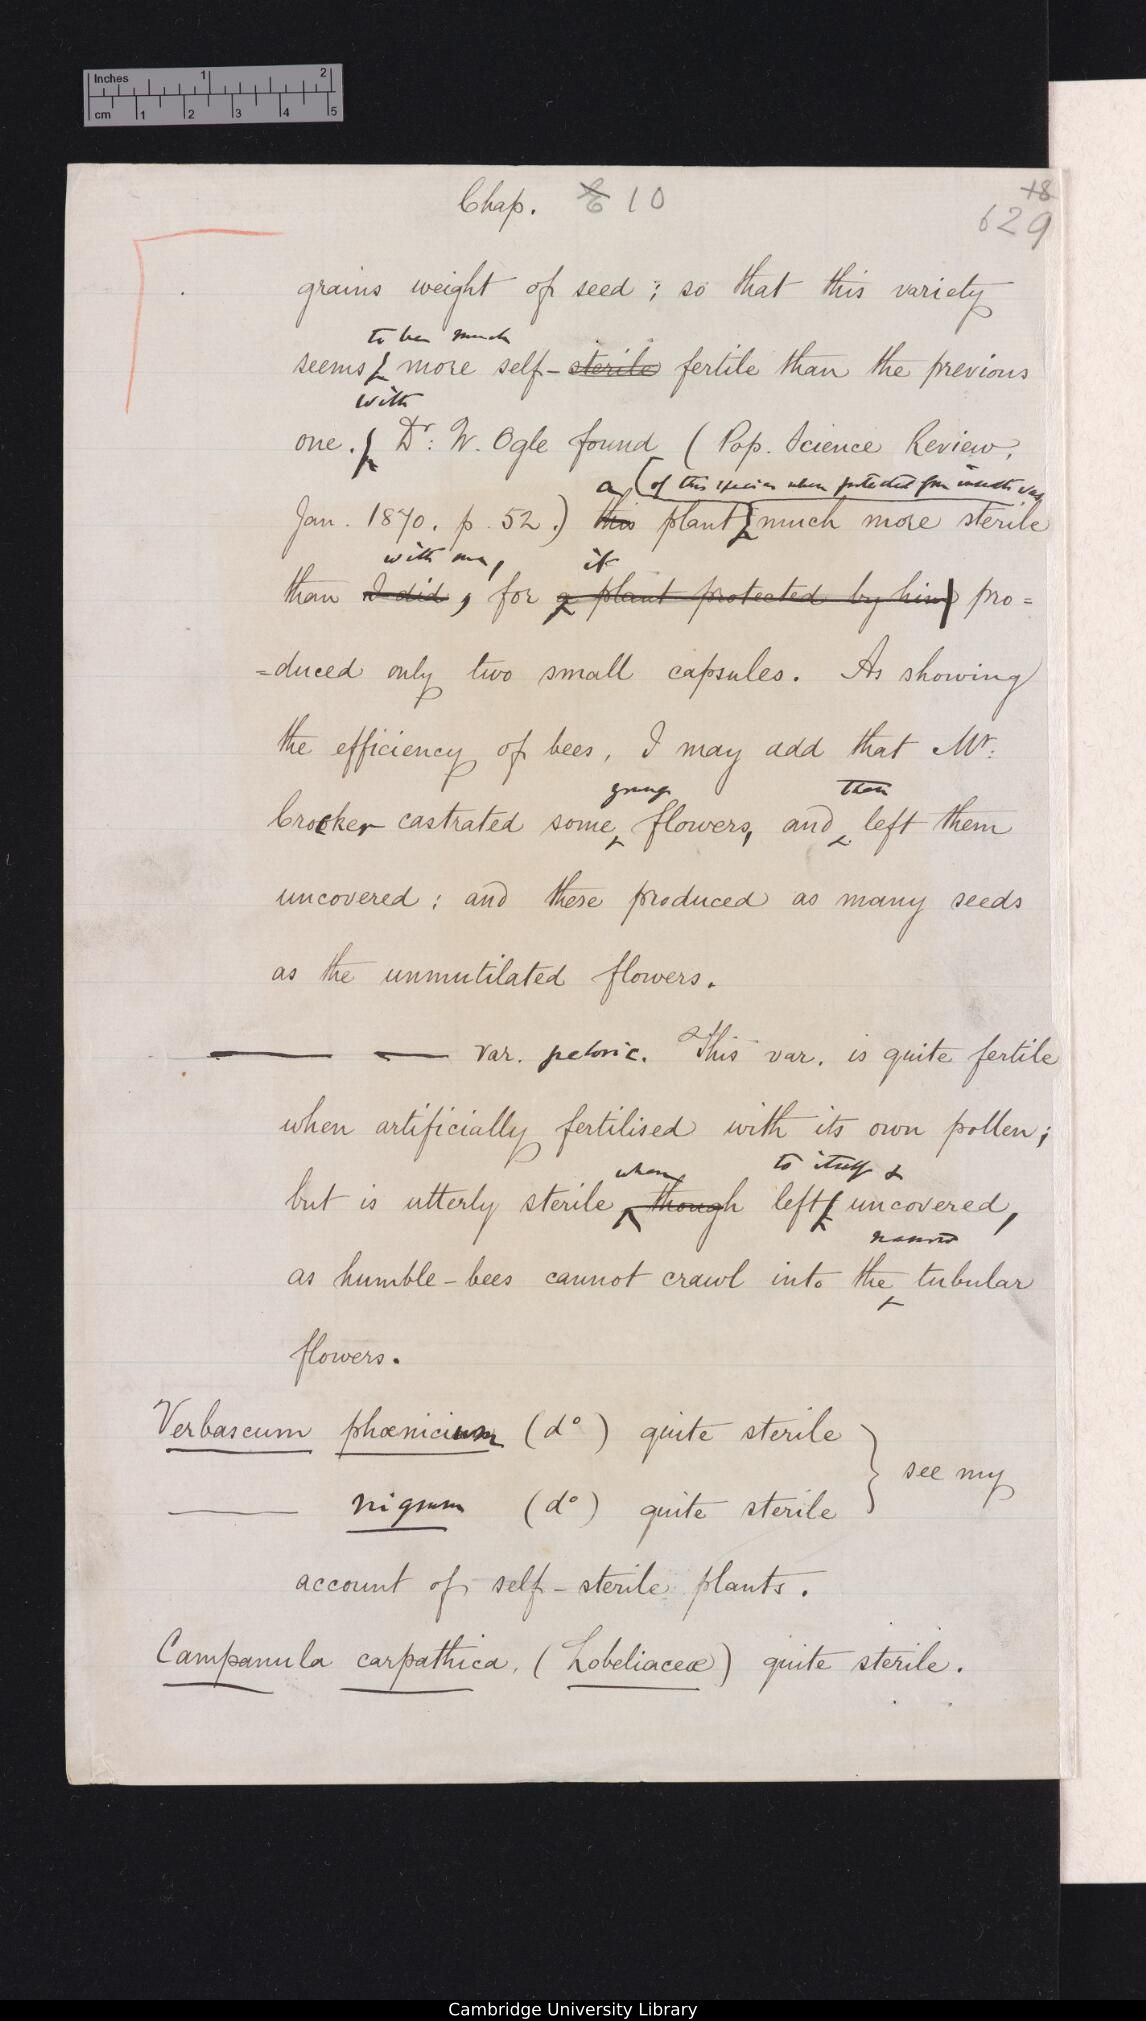 Inches 1 2
cm 1 2 3 4 5
Chap. 6 10
18
629
grains weight of seed ; so that this variety
to be much
seems more self-sterile fertile than the previous
with
one. Dr. W. Ogle found (Pop. Science Review,
a (of this species when protected from insects was
Jan. 1870. p. 52.) this plant much more sterile
with me, it
than I did, for a plant protected by him pro=
=duced only two small capsules. As showing
the efficiency of bees, I may add that Mr.
young then
Crocker castrated some flowers, and left them
uncovered ; and these produced as many seeds
as the unmutilated flowers.
var. peloric. This var. is quite fertile
when artificially fertilised with its own pollen;
when to itself &
but is utterly sterile though left uncovered,
narrow
as humble-bees cannot crawl into the tubular
flowers.
Verbascum phœnicium (do) quite sterile
see my
nigrum (do) quite sterile
account of self-sterile plants.
Campanula carpathica. (Lobeliaceæ) quite sterile.
Cambridge University Library